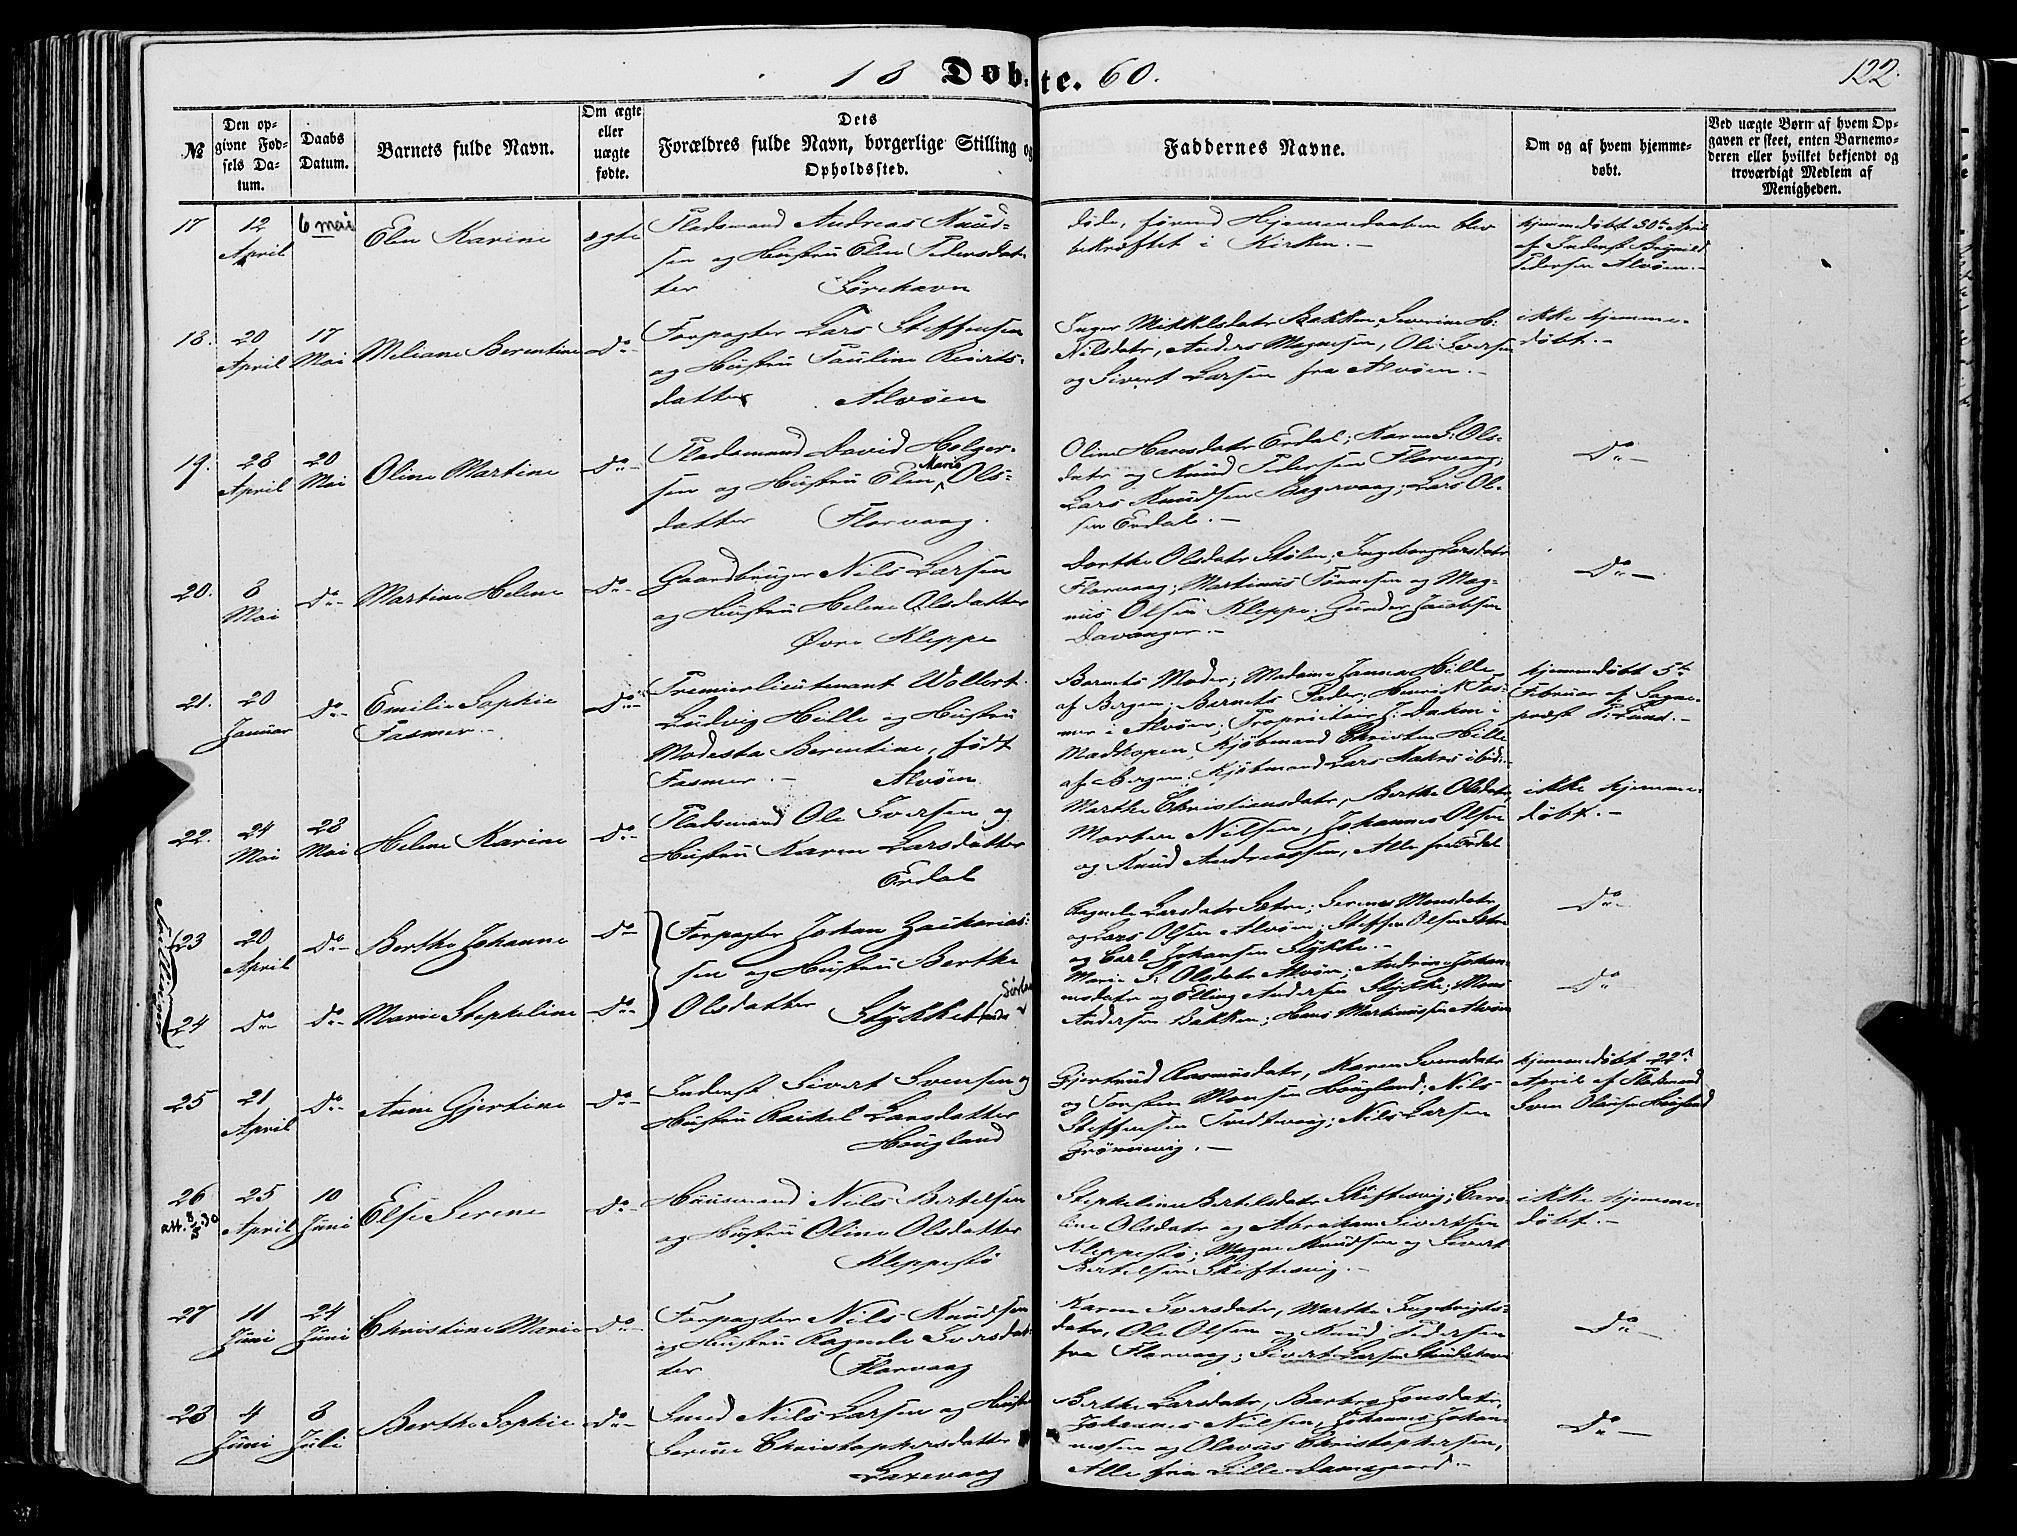 18 Døbte. 60.
122.
№
Den opgivne Fødsels Datum.
Daabs Datum.
Barnets fulde Navn.
Om ægte eller uægte fødte.
Dets Forældres fulde Navn, borgerlige Stilling og Opholdssted.
Faddernes Navne.
Om og af hvem hjemmedøbt.
Ved uægte Børn af hvem Opgaven er skeet, enten Barnemoderen eller hvilket bekjendt og troværdigt Medlem af Menigheden.
17
12 April
6 mai
Elen Karine
ægte
Pladsmand Andreas Knud-
sen og Hustru Elen Pedersdat-
ter
døde, førend Hjemmedaaben blev
bekræftet i Kirken.-
hjemmedøbt 30te April
af Inderst Brynild
Pedersen Alvøen.-
18.
20 April
17 Mai
Meliane Berentine
Do-
Forpagter Lars Steffensen
og Hustru Pauline
datter Alvøen
Inger Mikkelsdatr Bakken, Severine H:
Nilsdatr, Anders Mognesen, Ole Iversen
og Sivert Larsen fra Alvøen.-
ikke hjemme-
døbt.-
19.
28 April
20 Mai
Oline Martine
Do-
Pladsmand David Holger-
sen og Hustru Elen Marie Ols-
datter Florvaag.
Oline Hansdatr Erdal; Karen S: Ols-
datr og Knud Pedersen Florvaag;
Lars Knudsen Bagervaag; Lars Ol-
sen Erdal.-
Do-
20.
8 Mai
Do-
Martine Helene
Do-
Gaardbruger Nils Larsen
og Hustru Helene Olsdatter
Øvre Kleppe
Dorthe Olsdatr Stølen; Ingeborg Larsdatr
Florvaag; Martinus Tønnesen og Mag-
nus Olsen Kleppe; Gunder Jacobsen
Davanger.-
Do-
21.
20 Januar
Do-
Emilie Sophie
Fasmer.-
Do-
Premierlieutenant Wollert
Ludvig Hille og Hustru
Modesta Berentine, født
Fasmer.- Alvøen
Barnets Moder; Madame Hanna Hille
af Bergen; Barnets Fader; Henrik Fas-
mer i Alvøen; Proprietair J: Dahm i
Madkopen; Kjøbmand Christen Hille
af Bergen; Kjøbmand Lars ibid:-
hjemmedøbt 5te
Februar af Sogne-
præst P: Lund.-
22.
24 Mai
28 Mai
Helene Karine
Do-
Pladsmand Ole Iversen og
Hustru Karen Larsdatter
Erdal
Marthe Christiansdatr, Berthe Olsdatr,
Morten Nilsen, Johannes Olsen
og Knud Andreassen, Alle fra Erdal
ikke hjemme-
døbt.-
Tvillinger
23
20 April
Do-
Berthe Johanne
Do
Forpagter Johan Zacharias-
sen og Hustru Berthe
Olsdatter Stykket
Ragnele Larsdatr Sætre; Serene Monsdatr
og Lars Olsen Alvøen; Steffen Olsen Sætre
og Carl Johansen Stykke.-
Do-
24
Do-
Do-
Marie Stepheline
Do-
Marie S: Olsdatr Alvøen; Andrine Johan-
nesdatr og Elling Andersen Stykke; Mons
Andersen Bakken; Hans Martinussen Alvøen
Do
25
21 April
Do-
Anne Gjertine
Do-
Inderst Sivert Svensen og
Hustru Rachel Larsdatter
Hougland
Gjertrud Rasmusdatr, Karen Svensdatr
og Torsten Monsen Hougland; Nils
Steffensen Tvedtevaag; Nils Larsen
Grønnevig.-
hjemmedøbt 22d
April af Pladsmand
Sven Olsen Hougland
26
att. 8/3 30
25 April
10 Juni
Else Serene
Do-
Huusmand Nils Bertelsen
og Hustru Oline Olsdatter
Kleppestø
Stepheline Bertelsdatr Skiftesvig; Caro-
line Olsdatr og Abraham Sivertsen
Kleppestø; Magne Knudsen og Sivert
Bertelsen Skiftesvig.-
ikke hjemme-
døbt.-
27
11 Juni
24 Juni
Christine Marie
Do-
Forpagter Nils Knudsen
og Hustru Ragnele Iversdat-
ter Florvaag
Karen Iversdatr, Marthe Ingebrigts-
datr, Ole Olsen og Knud Pedersen
fra Florvaag; Sivert Larsen
Do-
28
4 Juni
8 Juli
Berthe Sophie
Do-
Smed Nils Larsen og Hustru
Serine Christophersdatter
Laxevaag
Berthe Larsdatr, Barbra Jonsdatr,
Johannes Nilsen, Johannes Johan-
nesen og Olavus Christophersen,
Alle fra Lille Damsgaard.-
Do-